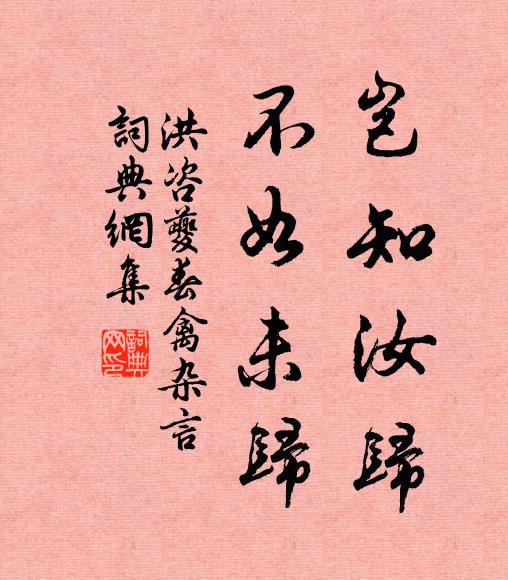 岂知汝歸
不如未歸
洪咨夔春禽杂言
詞典網集
詞典
网印